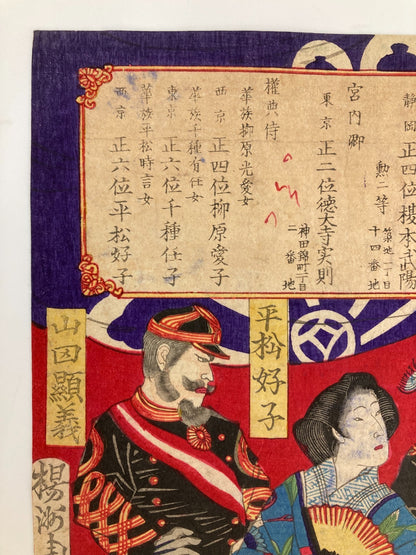 静岡 正四位榎本武陽
勲二等
築地二丁目
十四番地
宮内卿
東京 正二位徳大寺実則
神田錦町一丁目
二番地
権典侍
華族柳原光愛女
西京 正四位柳原愛子
華族千種有任女
東京 正六位千種任子
華族平松時言女
西京 正六位平松好子
平松好子
山田顕義
楊洲周